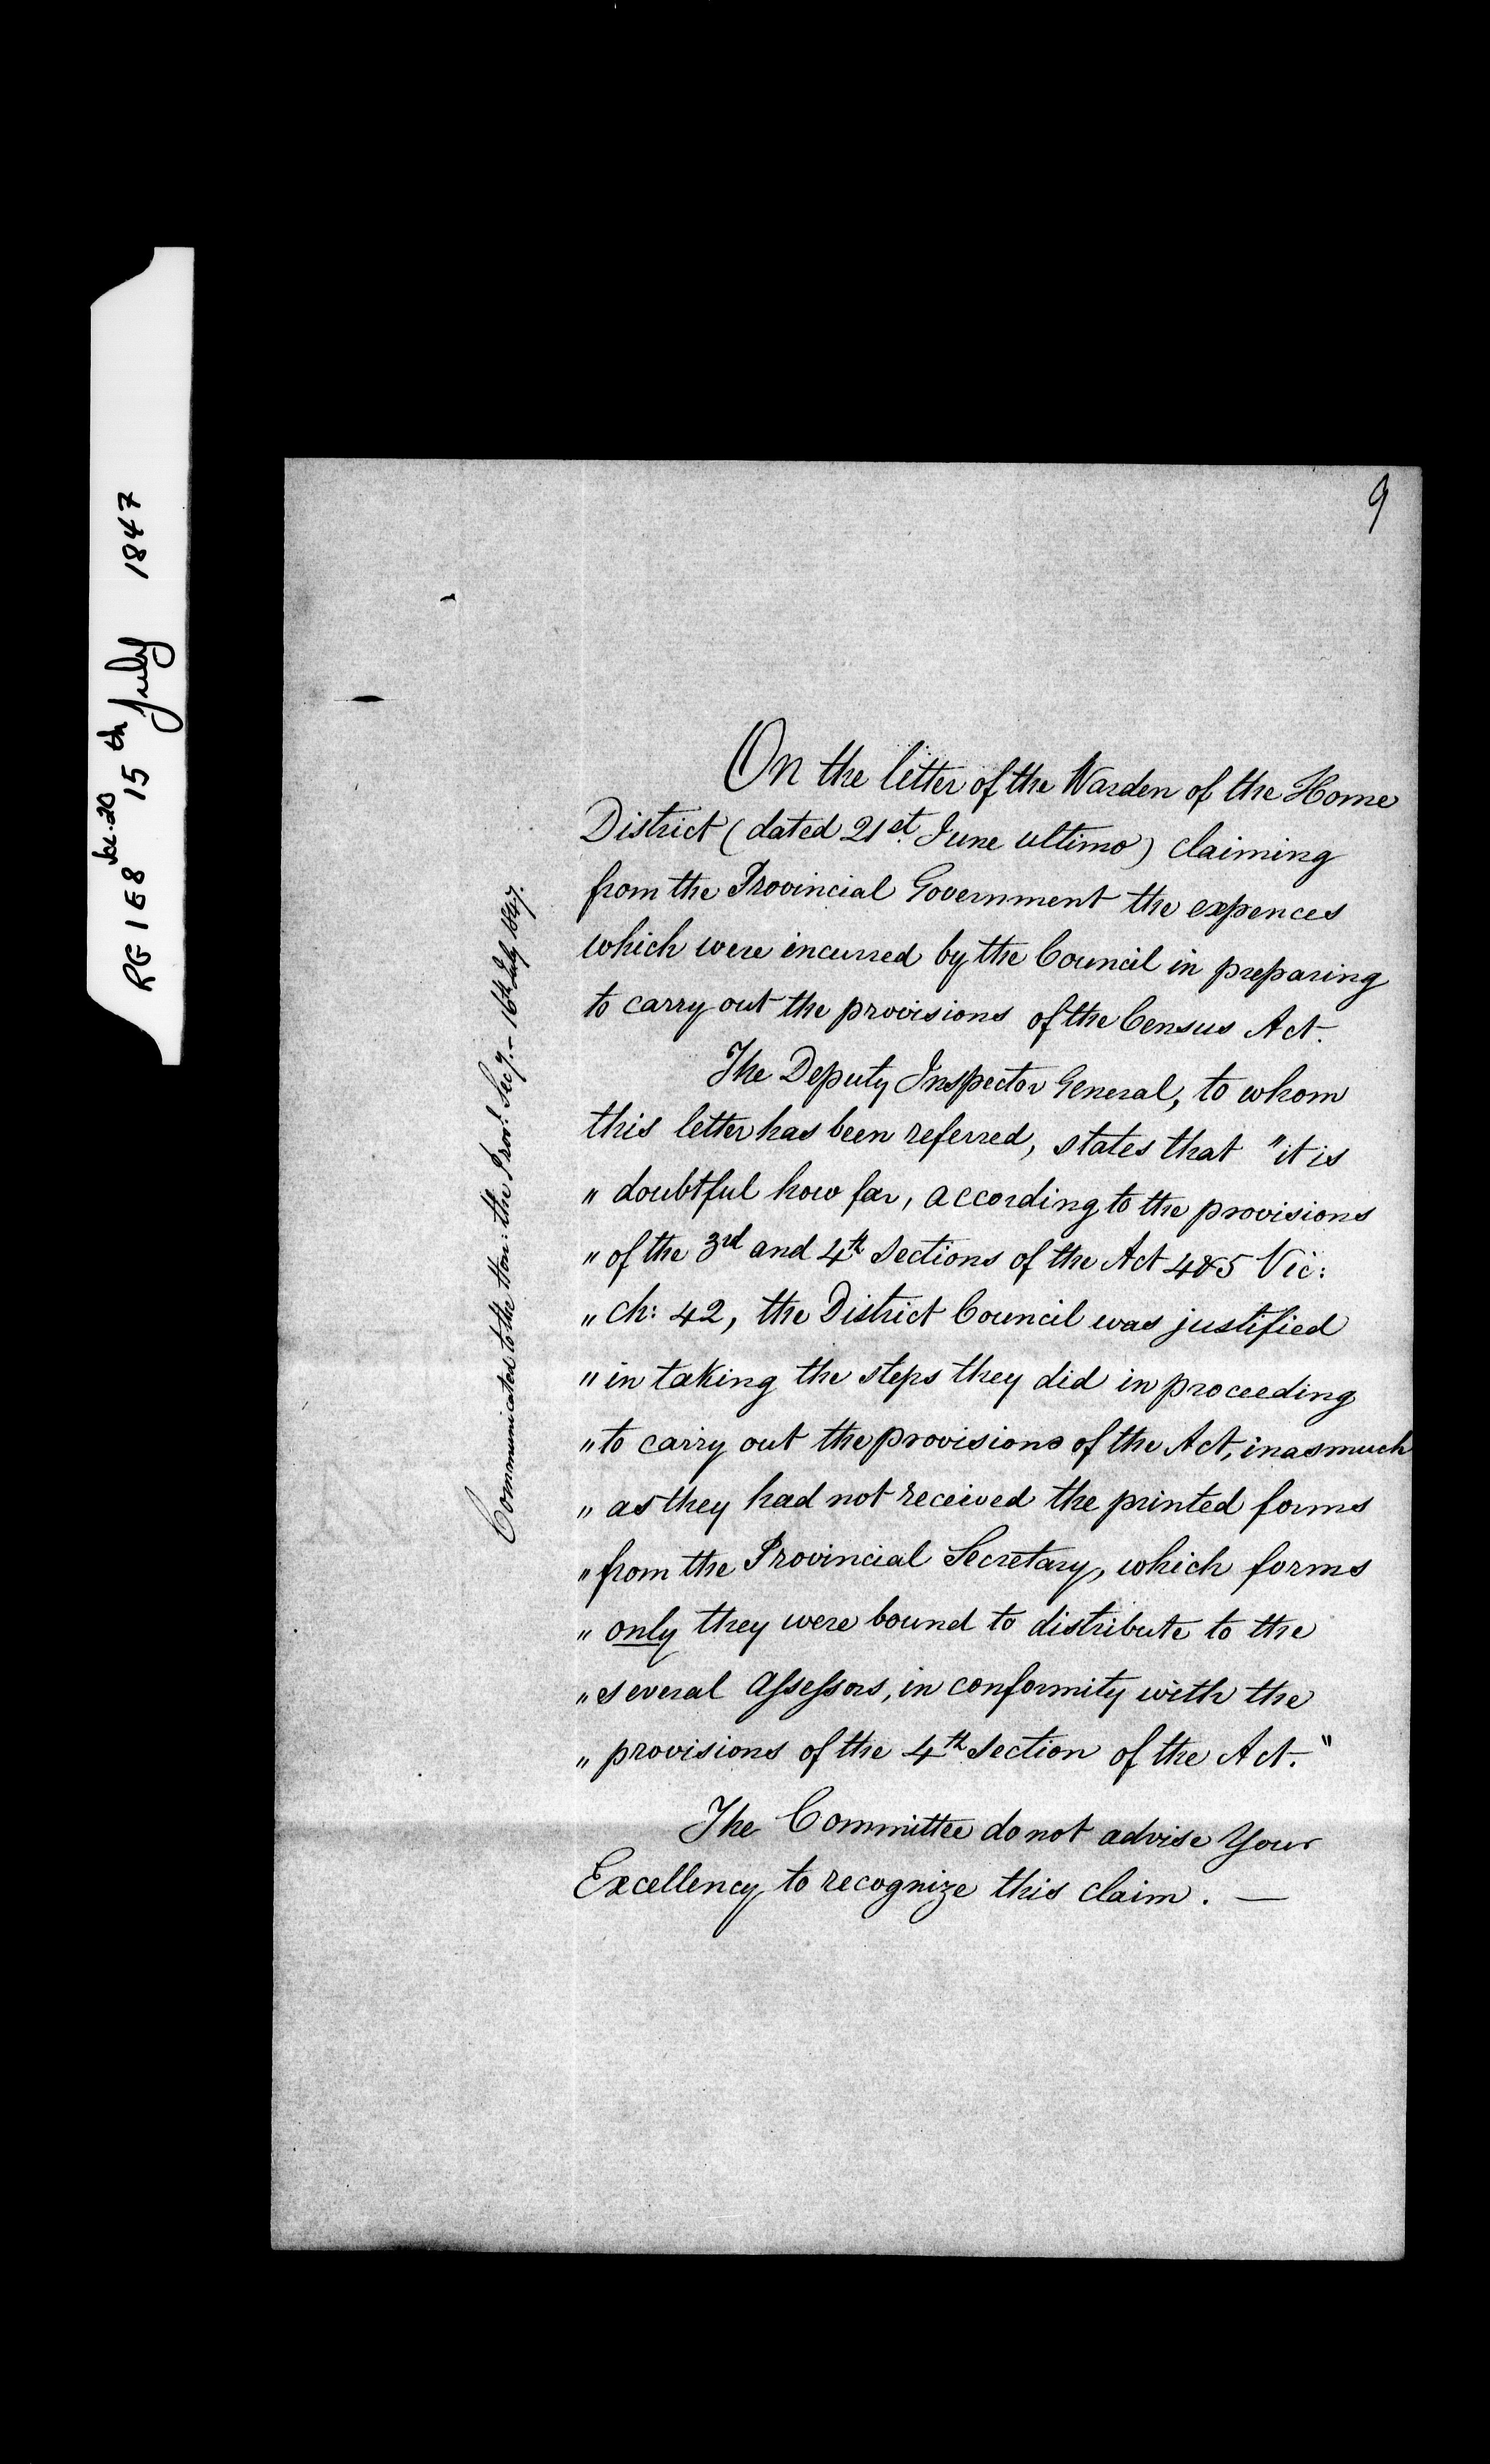 RG 1 E8 Vol. 20 15th July 1847
9
Communicated to the Hon: the Provl. Secy. – 16th July 1847.
On the letter of the Warden of the Home
District (dated 21st. June ultimo) claiming
from the Provincial Government the expences
which were incurred by the Council in preparing
to carry out the provisions of the Census Act.
The Deputy Inspector General, to whom
this letter has been referred, states that "it is
" doubtful how far, according to the provisions
" of the 3rd and 4th Sections of the Act 4&5 Vic:
" ch: 42, the District Council was justified
" in taking the steps they did in proceeding
" to carry out the provisions of the Act, inasmuch
" as they had not received the printed forms
" from the Provincial Secretary, which forms
" only they were bound to distribute to the
" several Assessors, in conformity with the
" provisions of the 4th. Section of the Act."
The Committee do not advise Your
Excellency to recognize this claim. —